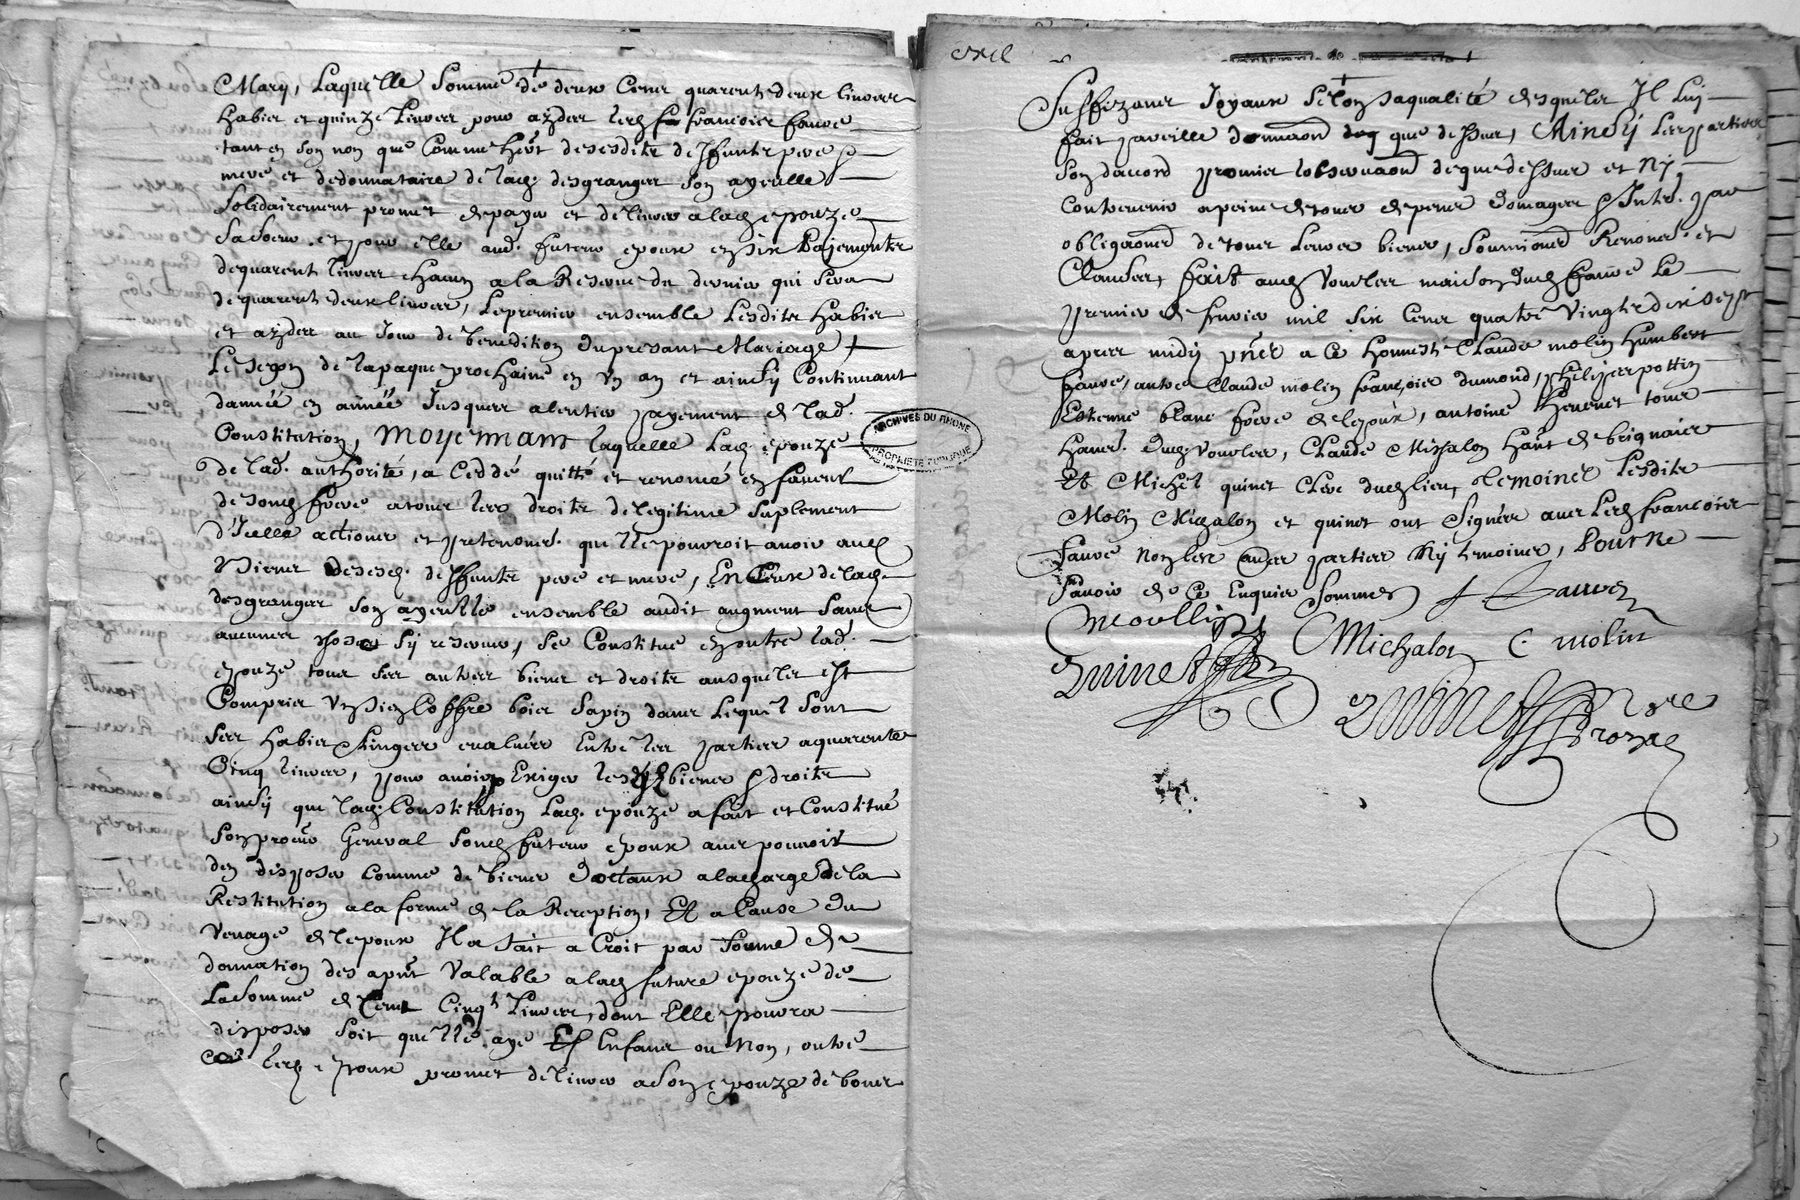 Mary, Laquelle Somme de deux Cent quarente deux livres
habis et quinze Livres pour aizder led. francois fauve
tant en son non que Comme hert. desesdits deffunts pere &
mere et dedonnataire de lad. desgranges son ayeulle
Solidairement promet de payer et delivrer a lad. epouze
Sa Soeur et pour elle aud. futeur epoux en six Pajements
dequarente livres chacun a la Reserve du dernier qui sera
dequarente deux livres, Le premier ensemble Lesdits habis
et aizder au Jour de benedition du presant Mariage
Le segon de la paque prochaine en un an et ainsy Continuant
d'année en année Jusques a lentier payement de lad.
Constitution, moyennant laquelle Lad. epouze
de lad. authorité, a ceddé quitté et renoncé en faveur
de son d. frere a tous ses droits de legitime suplement
d'icelle actions et pretentions quelle pouvroit avoir aud.
Biens desesd. deffunts pere et mere, En Ceux de lad.
desgranges son ayeulle ensemble audit augment sans
aucunes choses sy reserver, Se Constitue en outre lad.
epouze tous ses autres biens et droits ausquels est
Compris un sien Coffre bois sapin dans Lequel sont
ses habis & linges evalués entre les parties a quarente
Cinq livres, pour avoir Exiger lesd. biens & droits
ainsy que lad. Constitution Lad. epouze a fait et Constitué
son procur General son d. futeur epoux avec pouvoir
den disposer comme de biens doctaux a la charge de la
Restitution a la forme de la Reception, Et a Cause du
vevage de lepoux Il a fait a Croit par forme de
donnation des apnt valable a lad. future epouze de
La somme de Cent Cinqt Livres, dont Elle pouvra
disposer soit quelle aye Enfans ou Non, outre
ce led. epoux promet delivrer a son epouze de bons
Suffizans Joyaux selon sa qualité desquels Il luy
fait pareille donnaon que dessus, Ainsy Les parties
Son daccord promis lobservaon de que dessus et ny
Contrevenir a peine de tous depens domages & Intr. par
obligaons de tous leurs biens, soumissions Renoncs. et
Clauses, fait aud. vourles maison dud. fauve Le
premier de fevrier mil six Cent quatre Vingts dix sept
apres midy pnts a ce honneste Claude molin humbert
fauve, autre Claude molin francois dumond, philippes pottin
Estienne blanc frere de lepoux, antoine thevenet tous
hants. dud. vourles, Claude Michalon hant de brignais
Et Michel quinet Clerc dud. lieu, temoins Lesdits
Molin Michalon et quinet ont signés avec Led. francois
fauve Non les autres parties Ny temoins, Pour Ne
savoir de Ce Enquis Sommes
f fauve
moullin Michalon C molin
Quinet
Quinet
ARCHIVES DU RHONE
PROPRIETE PUBLIQUE